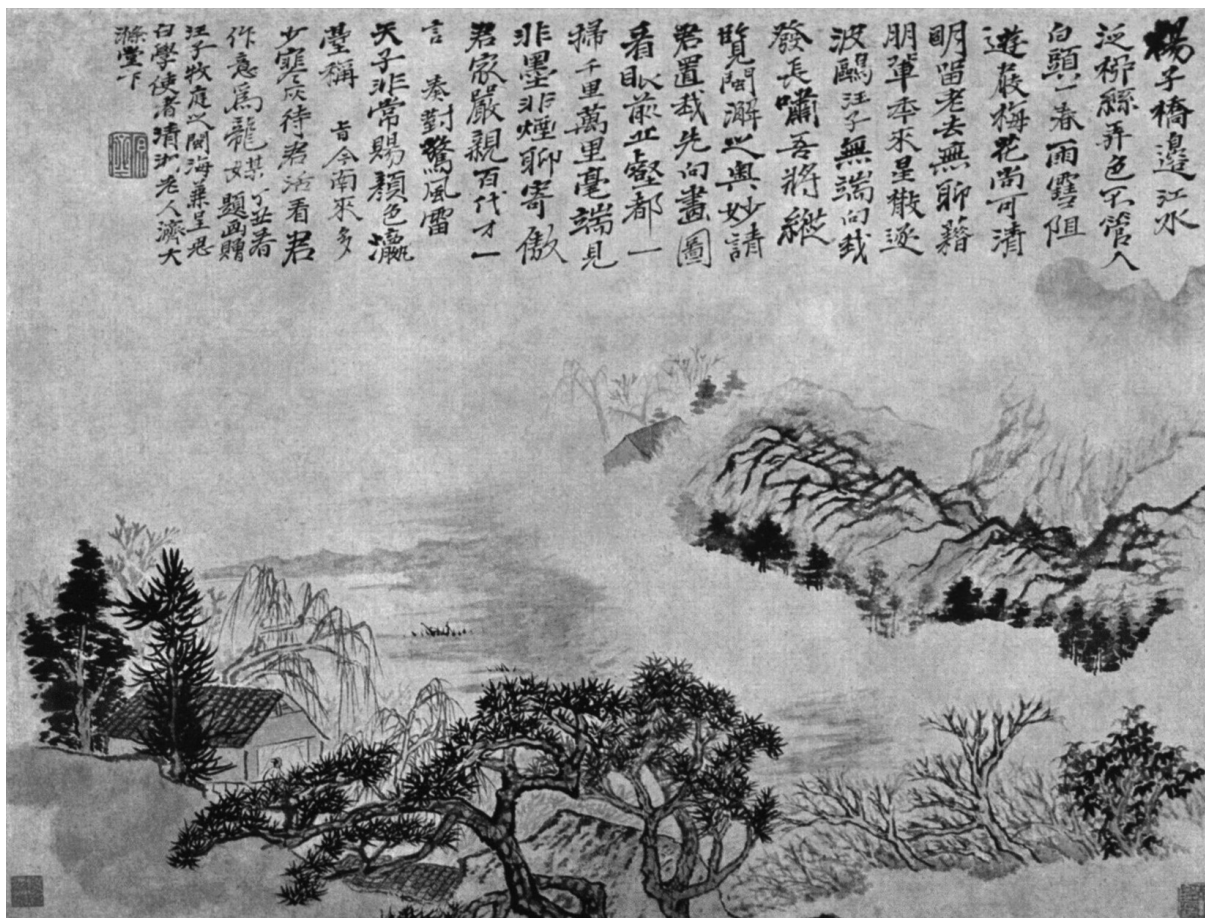 楊子橋邊江水
泛柳絲弄色不管人
白頭一春雨雪阻
遊梅花尚可清
明留老去無聊藉
朋輩本來星散逐
波鷗汪子無端向我
發長嘯吾將縱
覽閩澥之奧妙請
君置我先向畫圖
看眼前丘壑都一
掃千里萬里毫端見
非墨非煙聊寄傲
君家嚴親百代才一
言 奏對驚風雷
天子非常賜顏色瀛
瀅稱 旨今南來多
少寒灰待君活看君
作意爲龍媒丁丑春
題画贈
汪子牧庭之閩海兼呈思
白學使者清湘老人濟大
滌堂下